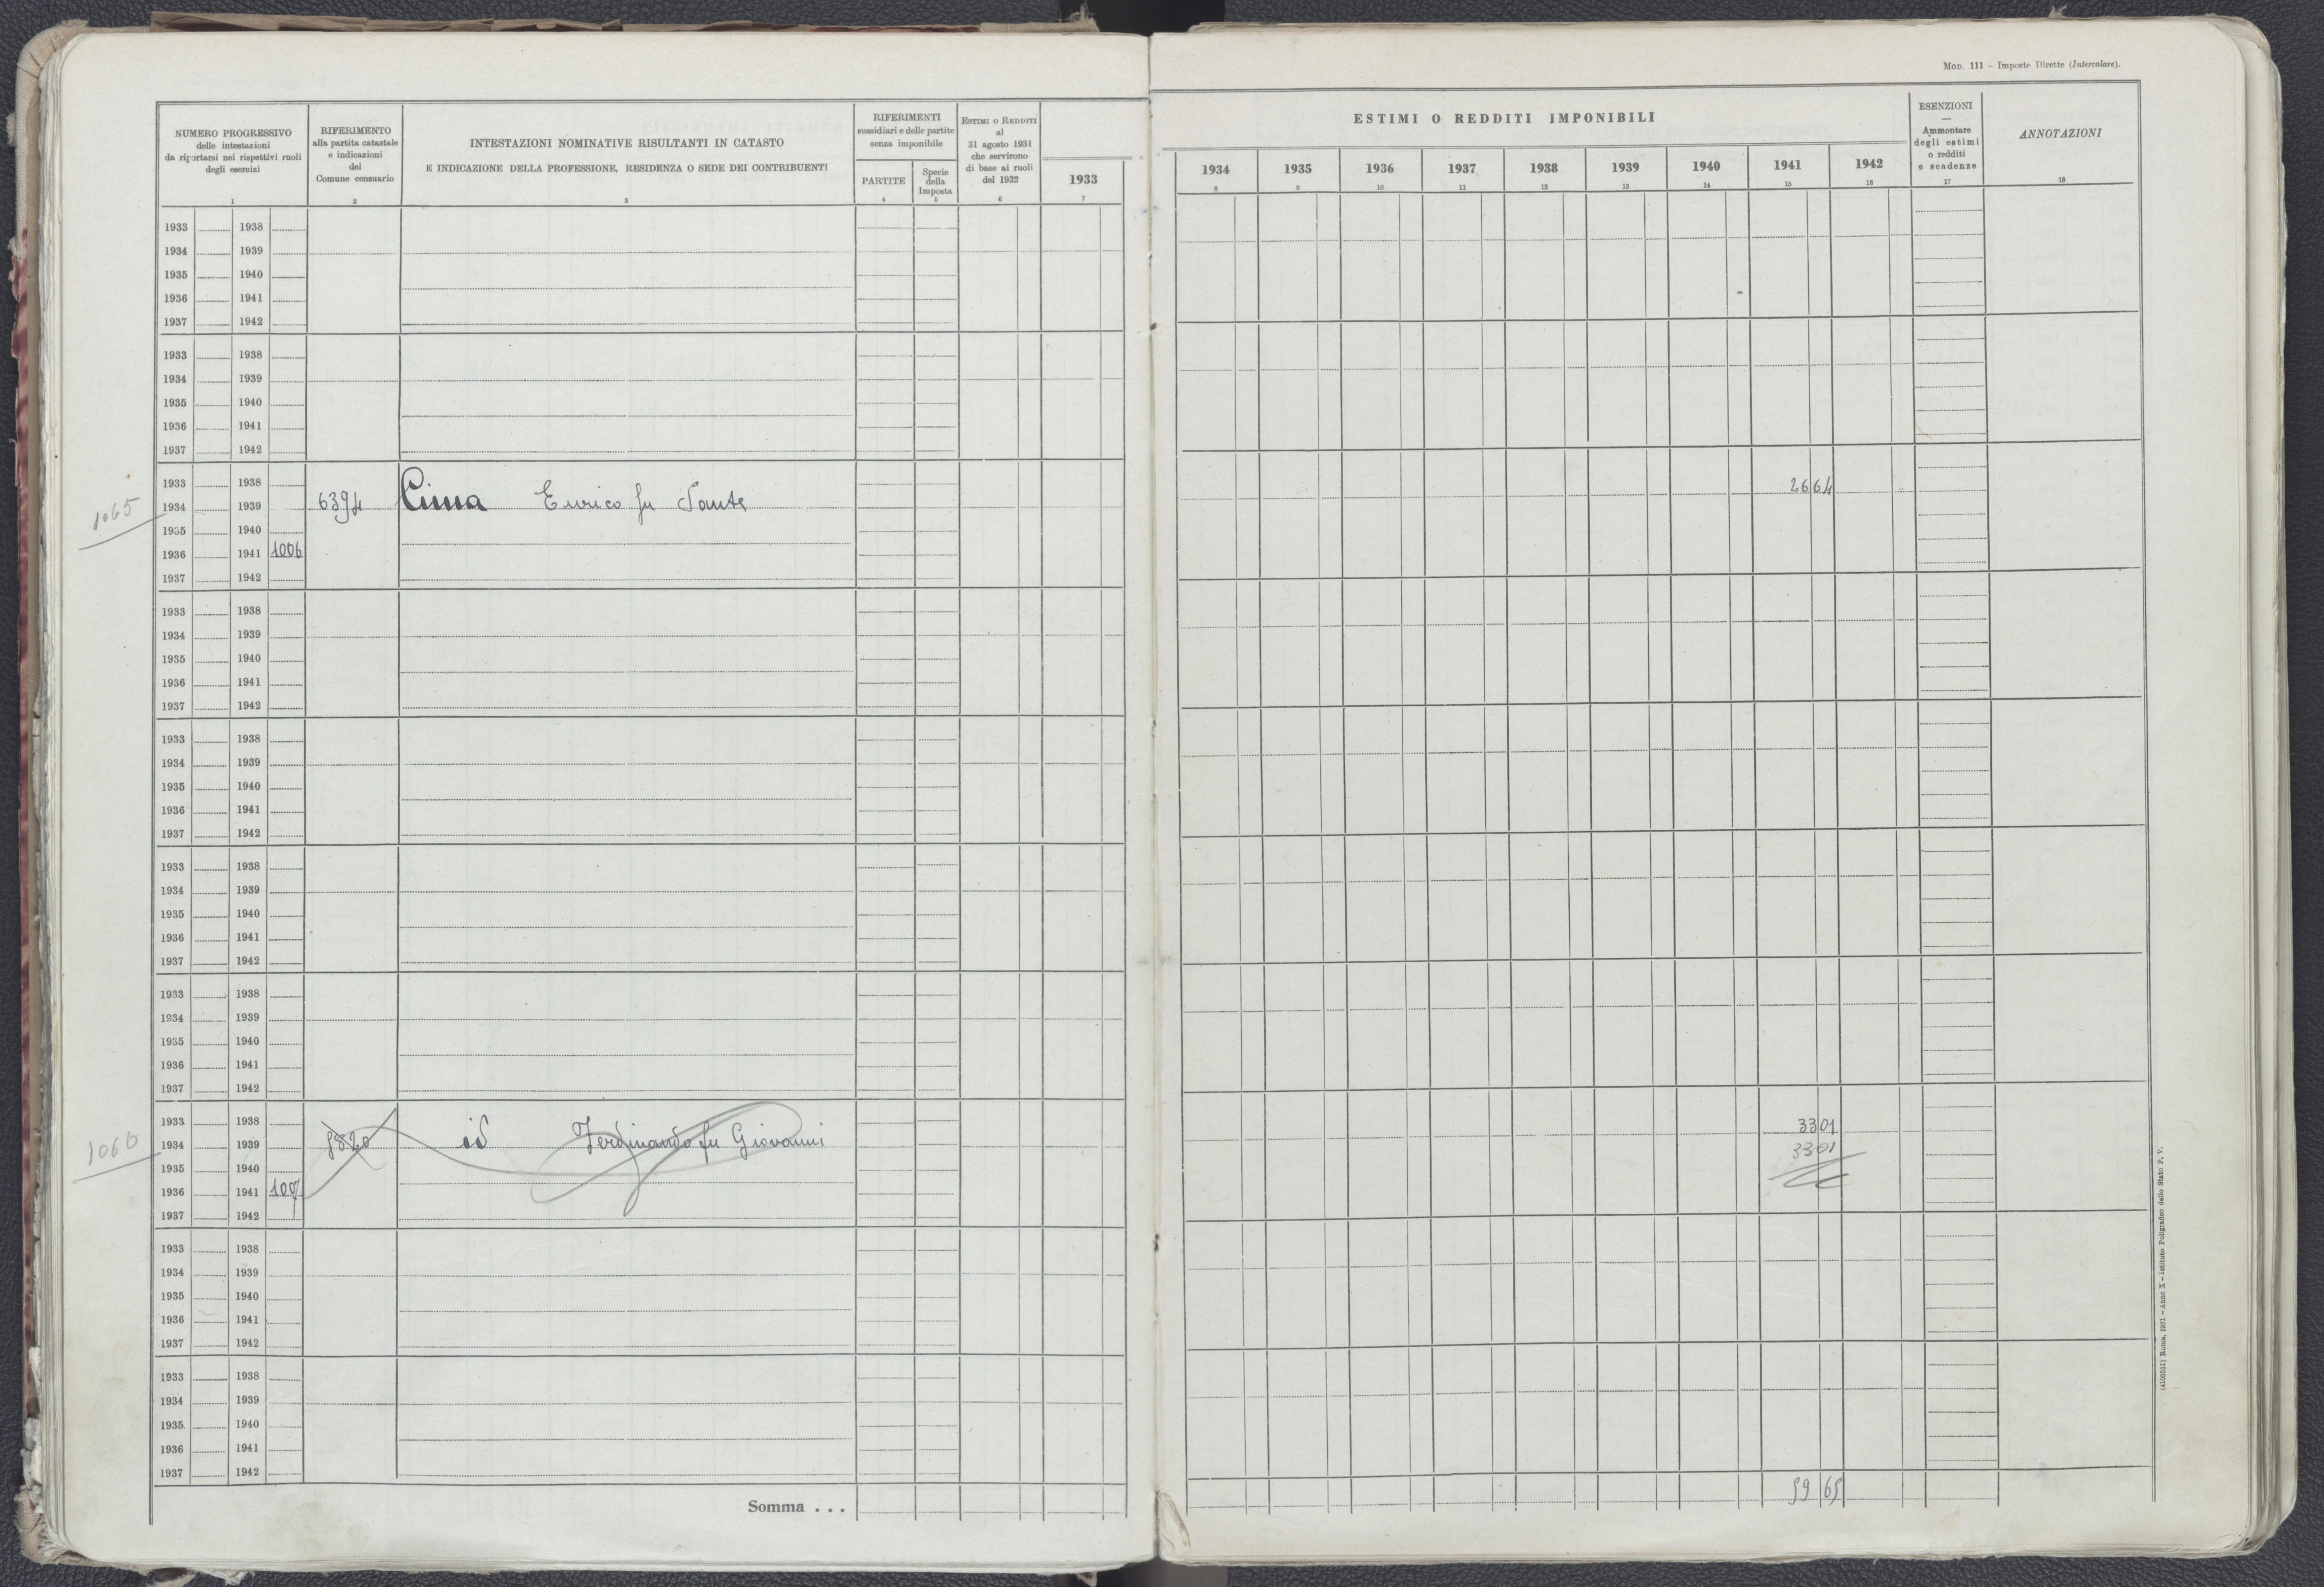 Mod. 111 – Imposte Dirette (Intercalare).
NUMERO PROGRESSIVO
delle intestazioni
da riportarsi nei rispettivi ruoli
degli esercizi
1
RIFERIMENTO
alla partita catastale
e indicazioni
del
Comune censuario
2
INTESTAZIONI NOMINATIVE RISULTANTI IN CATASTO
E INDICAZIONE DELLA PROFESSIONE, RESIDENZA O SEDE DEI CONTRIBUENTI
3
RIFERIMENTI
sussidiari e delle partite
senza imponibile
PARTITE
4
Specie
della
Imposta
5
Estimi o Redditi
al
31 agosto 1931
che servirono
di base ai ruoli
del 1932
6
1933
7
ESTIMI O REDDITI IMPONIBILI
1934 1935 1936 1937 1938 1939 1940 1941 1942
8 9 10 11 12 13 14 15 16
ESENZIONI
—
Ammontare
degli estimi
o redditi
e scadenze
17
ANNOTAZIONI
18
1933 1938
1934 1939
1935 1940
1936 1941
1937 1942
1933 1938
1934 1939
1935 1940
1936 1941
1937 1942
1933 1938
1065 1934 1939 6394 Cima Enrico fu Sante 2664
1935 1940
1936 1941 1006
1937 1942
1933 1938
1934 1939
1935 1940
1936 1941
1937 1942
1933 1938
1934 1939
1935 1940
1936 1941
1937 1942
1933 1938
1934 1939
1935 1940
1936 1941
1937 1942
1933 1938
1934 1939
1935 1940
1936 1941
1937 1942
1933 1938 3301
1066 1934 1939 id Ferdinando fu Giovanni 3301
1935 1940
1936 1941 1007
1937 1942
1933 1938
1934 1939
1935 1940
1936 1941
1937 1942
1933 1938
1934 1939
1935. 1940
1936 1941
1937 1942
Somma . . . 5965
Roma, 1931 – Anno X – Istituto Poligrafico dello Stato P. V.